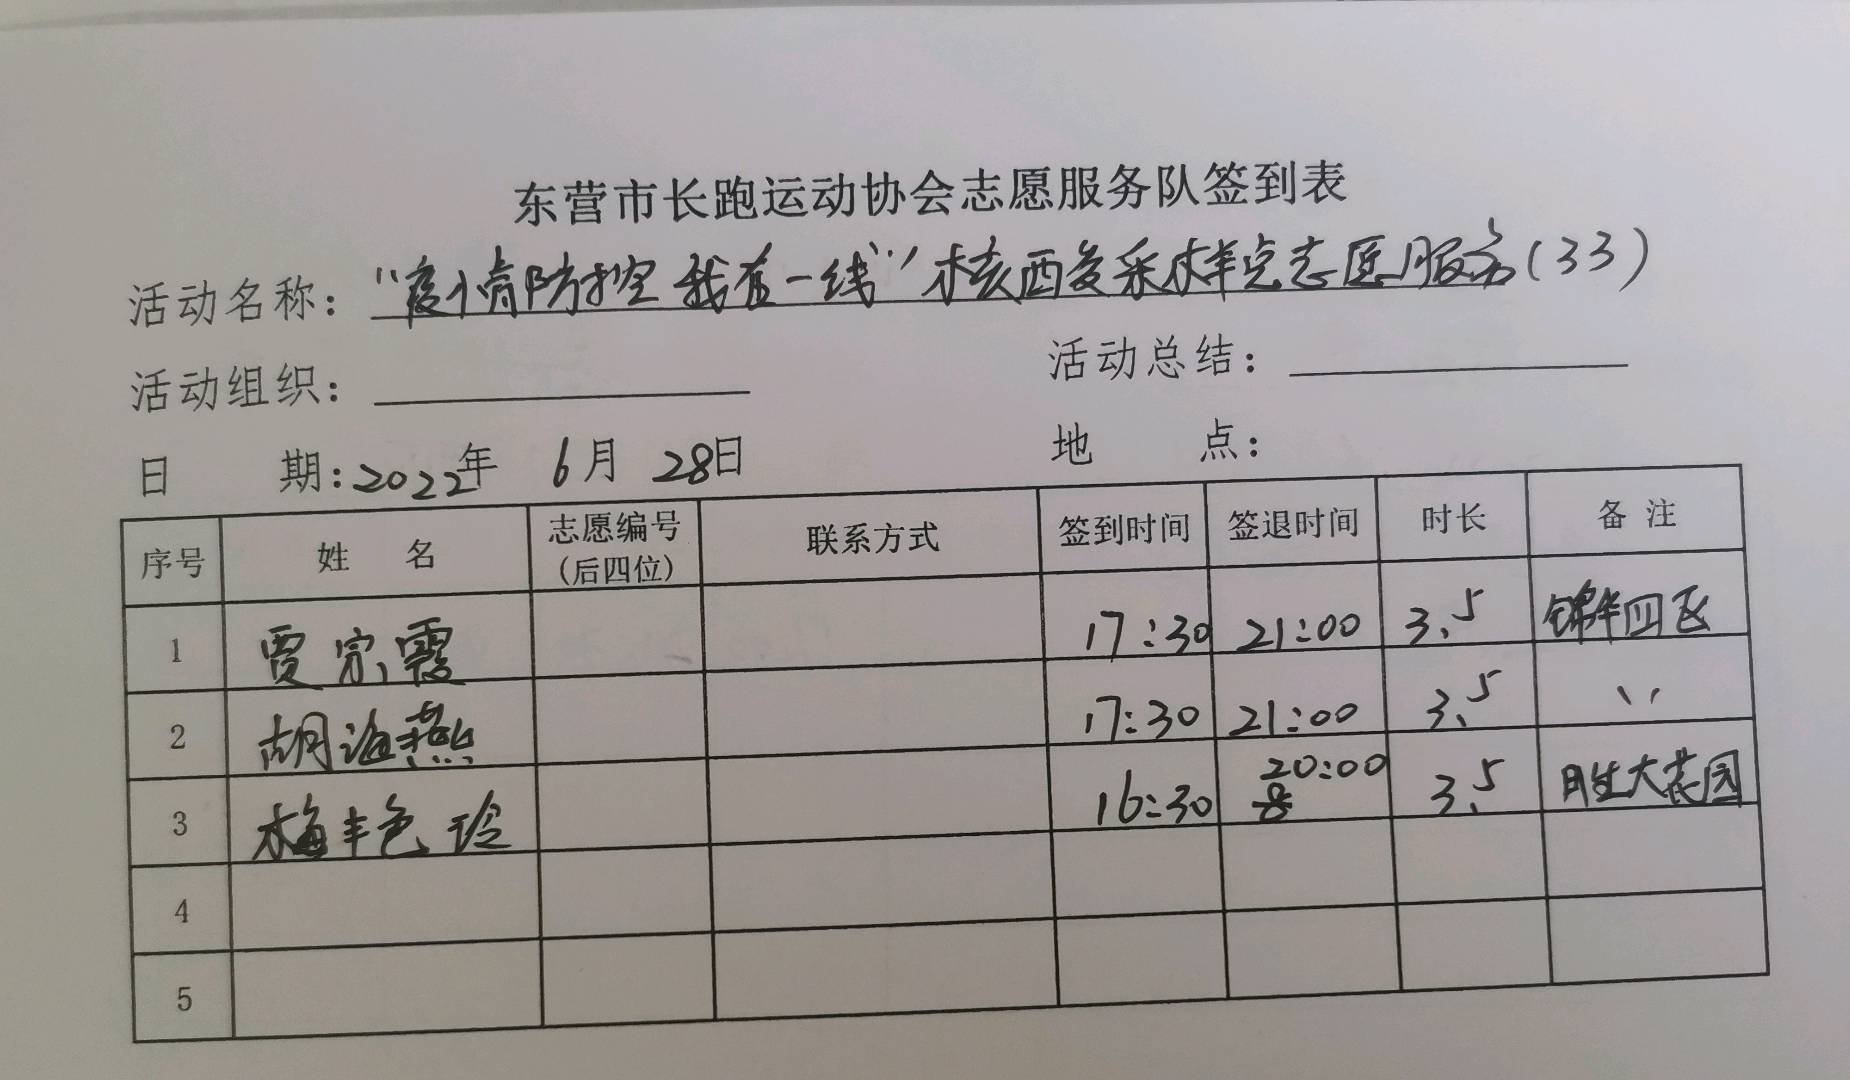 东营市长跑运动协会志愿服务队签到表
活动名称：“疫情防控 我在一线”核酸采样点志愿服务(33)
活动组织： 活动总结：
日 期：2022年 6月 28日 地 点：
序号 姓 名 志愿编号(后四位) 联系方式 签到时间 签退时间 时长 备 注
1 贾宗霞 17:30 21:00 3.5 锦华四区
2 胡海燕 17:30 21:00 3.5 〃
3 梅艳玲 16:30 20:00 3.5 胜大花园
4
5